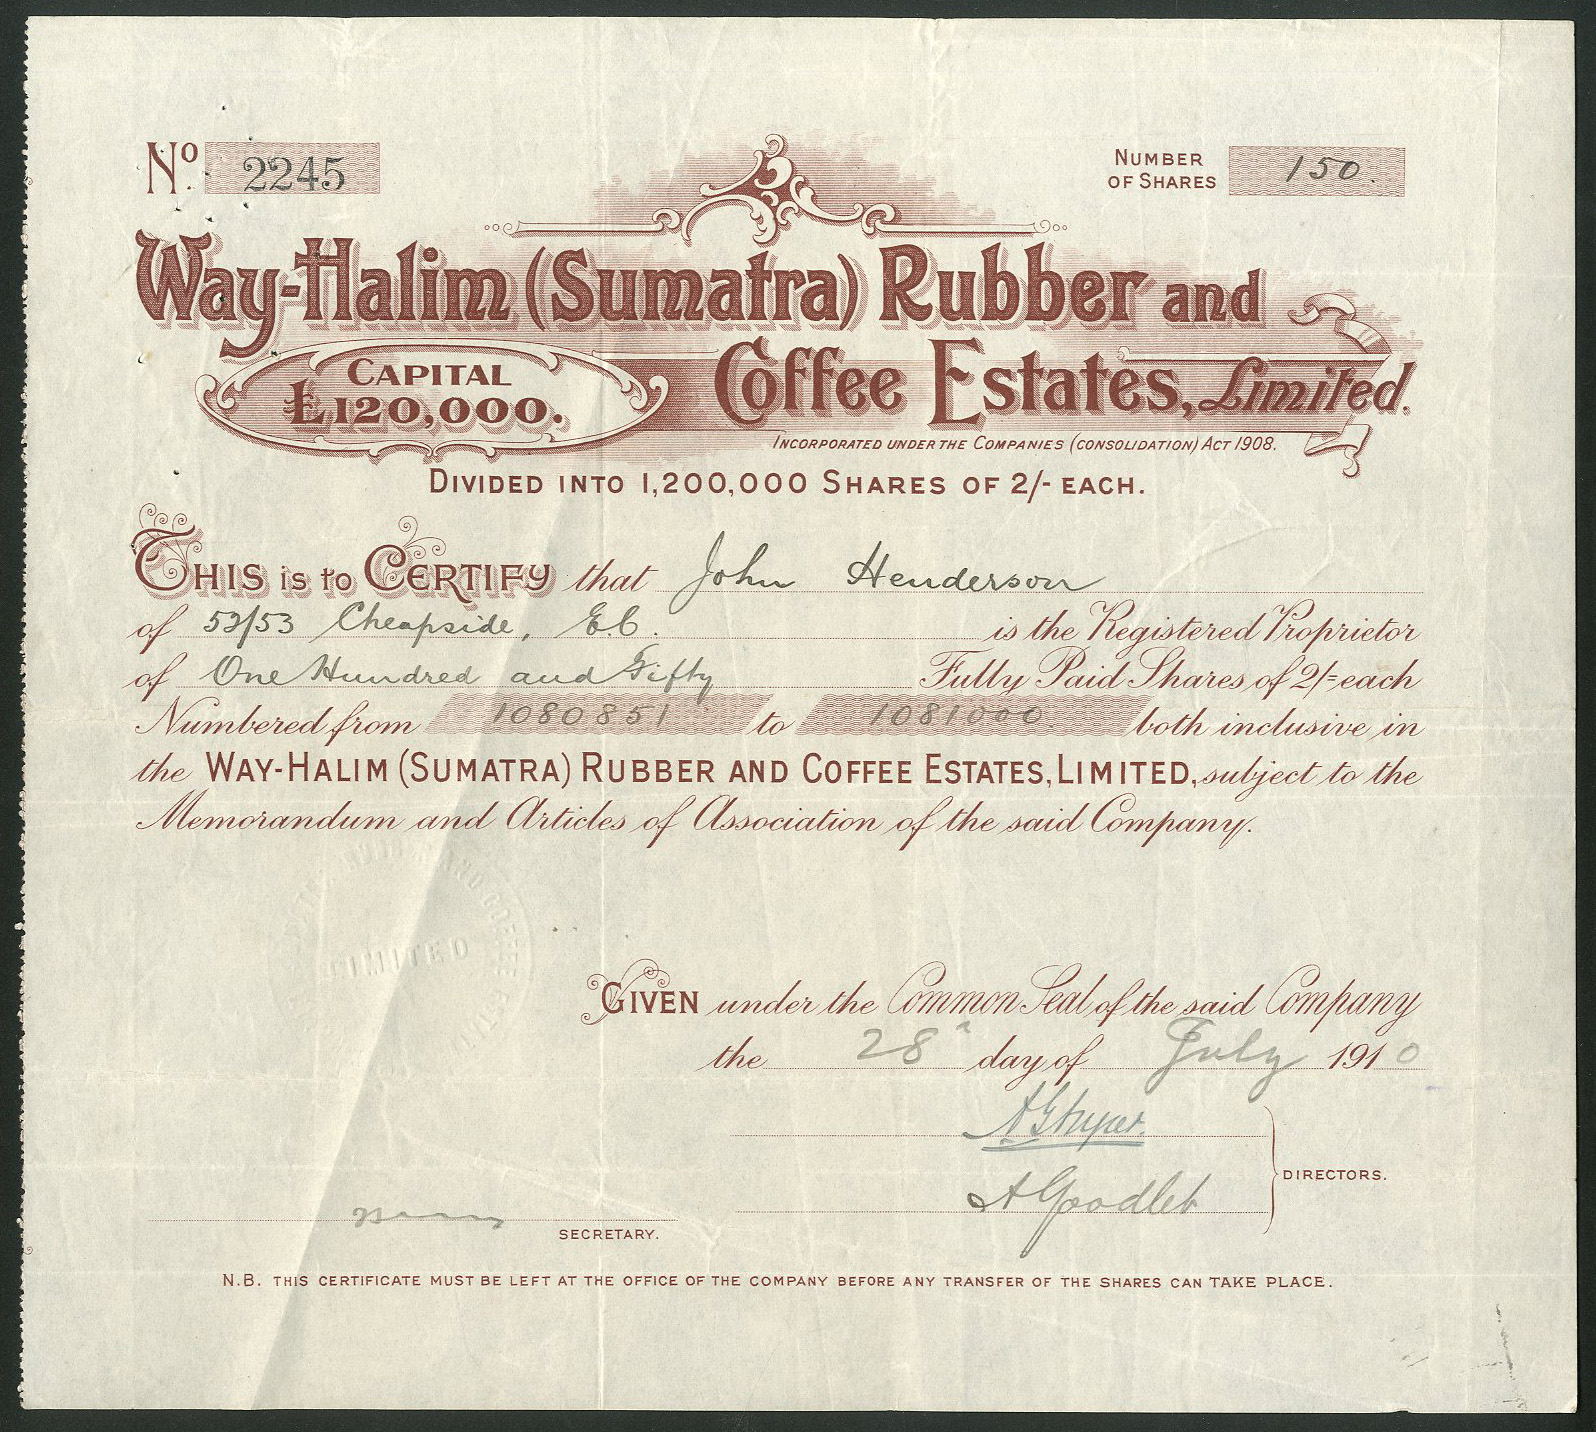 Nº 2245
NUMBER OF SHARES 150.
Way-Halim (Sumatra) Rubber and
Coffee Estates, Limited.
CAPITAL
£120,000.
INCORPORATED UNDER THE COMPANIES (CONSOLIDATION) ACT 1908.
DIVIDED INTO 1,200,000 SHARES OF 2/- EACH.
THIS is to CERTIFY that John Henderson
of 52/53 Cheapside, E.C. is the Registered Proprietor
of One Hundred and Fifty Fully Paid Shares of 2/= each
Numbered from 1080851 to 1081000 both inclusive in
the WAY-HALIM (SUMATRA) RUBBER AND COFFEE ESTATES, LIMITED, subject to the
Memorandum and Articles of Association of the said Company.
LIMITED
GIVEN under the Common Seal of the said Company
the 28 day of July 1910
A Goodlet
DIRECTORS.
SECRETARY.
N.B. THIS CERTIFICATE MUST BE LEFT AT THE OFFICE OF THE COMPANY BEFORE ANY TRANSFER OF THE SHARES CAN TAKE PLACE.